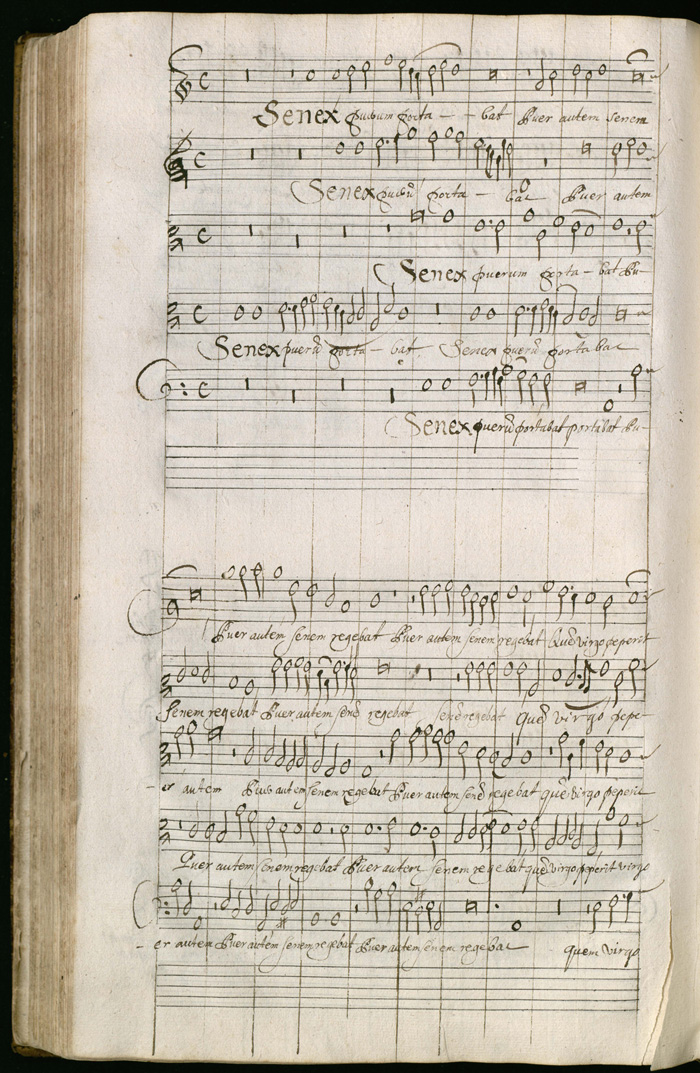 Senex puerum porta - - bat Puer autem senem
Senex puerū porta - bat Puer autem
Senex puerum porta - bat Pu-
Senex puerū porta - bat Senex puerū porta bat
Senex puerū portabat portabat Pu-
Puer autem senem regebat Puer autem senem regebat Quē virgo peperit
Senem regebat Puer autem senē regebat senē regebat Quē virgo pepe-
- er autem Puer autem senem regebat Puer autem senē regebat quē virgo peperit
Puer autem senem regebat Puer autem senem regebat quē virgo peperit virgo
- er autem Puer autem senem regebat Puer autem senem regebat quem virgo